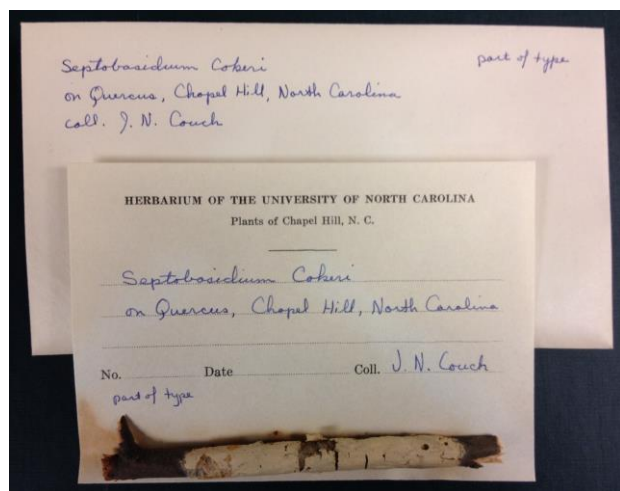 Septobasidium Cokeri
part of type
on Quercus, Chapel Hill, North Carolina
coll. J. N. Couch
HERBARIUM OF THE UNIVERSITY OF NORTH CAROLINA
Plants of Chapel Hill, N. C.
Septobasidium Cokeri
on Quercus, Chapel Hill, North Carolina
No. Date Coll. J. N. Couch
part of type